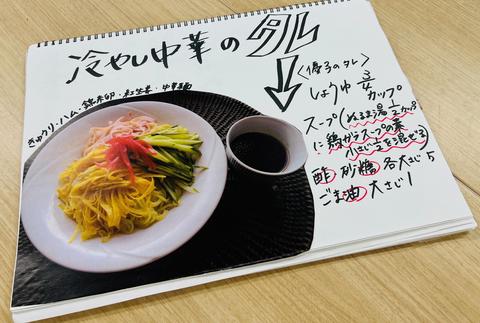 冷やし中華のタレ
きゅうり・ハム・錦糸卵・紅生姜・中華麺
<優子のタレ>
しょうゆ 3/4カップ
スープ(ぬるま湯1/2カップ
に鶏がらスープの素
小さじ1/2を混ぜる)
酢 砂糖 各大さじ5
ごま油 大さじ1